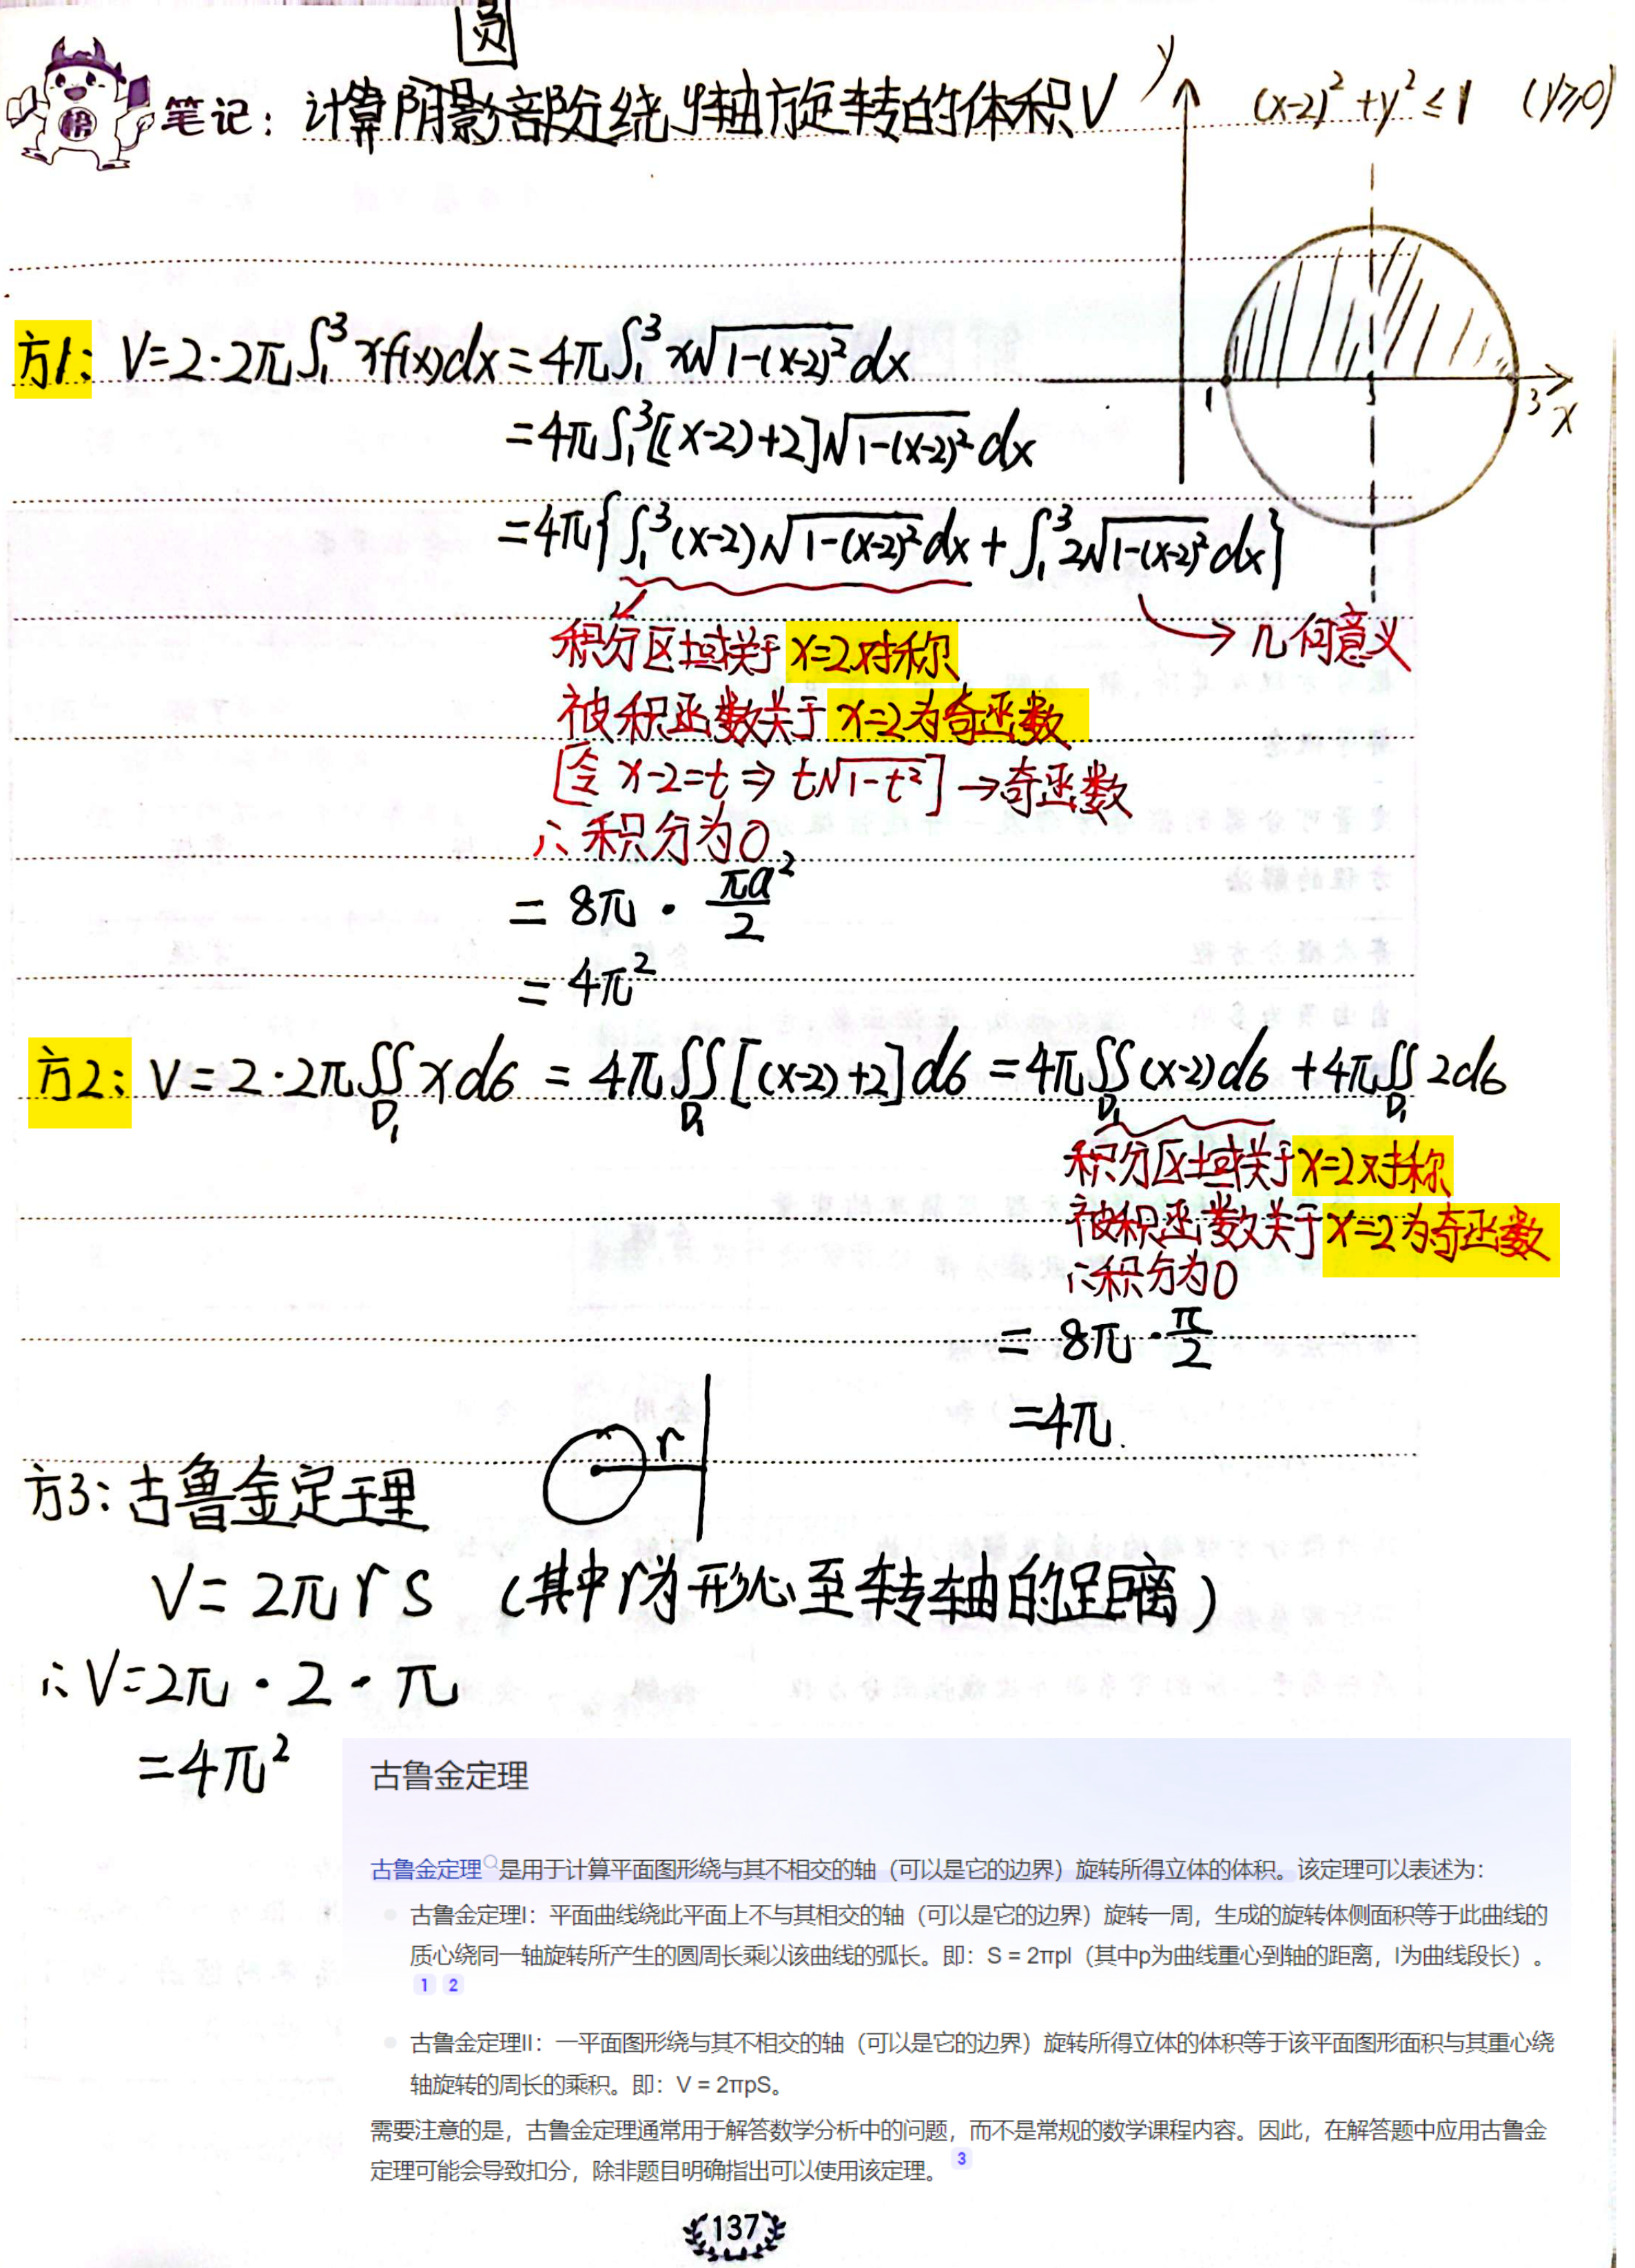 圆
笔记：计算阴影部分绕y轴旋转的体积V
y
(x-2)²+y²≤1 (y≥0)
1
3
x
方1: V=2·2π∫₁³xf(x)dx=4π∫₁³x√(1-(x-2)²)dx
=4π∫₁³[(x-2)+2]√(1-(x-2)²)dx
=4π{∫₁³(x-2)√(1-(x-2)²)dx+∫₁³2√(1-(x-2)²)dx}
→几何意义
积分区域关于x=2对称
被积函数关于x=2为奇函数
[令 x-2=t ⇒ t√(1-t²)]→奇函数
∴积分为0
= 8π·πa²/2
= 4π²
方2: V=2·2π∬_D₁ xdσ = 4π∬_D₁[(x-2)+2]dσ =4π∬_D₁(x-2)dσ+4π∬_D₁2dσ
积分区域关于x=2对称
被积函数关于x=2为奇函数
∴积分为0
= 8π·π/2
=4π.
r
方3: 古鲁金定理
V= 2πrS （其中r为形心至转轴的距离）
∴V=2π·2·π
=4π²
古鲁金定理
古鲁金定理是用于计算平面图形绕与其不相交的轴（可以是它的边界）旋转所得立体的体积。该定理可以表述为：
古鲁金定理I：平面曲线绕此平面上不与其相交的轴（可以是它的边界）旋转一周，生成的旋转体侧面积等于此曲线的
质心绕同一轴旋转所产生的圆周长乘以该曲线的弧长。即：S = 2πpl（其中p为曲线重心到轴的距离，l为曲线段长）。
1 2
古鲁金定理II：一平面图形绕与其不相交的轴（可以是它的边界）旋转所得立体的体积等于该平面图形面积与其重心绕
轴旋转的周长的乘积。即：V = 2πpS。
需要注意的是，古鲁金定理通常用于解答数学分析中的问题，而不是常规的数学课程内容。因此，在解答题中应用古鲁金
定理可能会导致扣分，除非题目明确指出可以使用该定理。 3
137